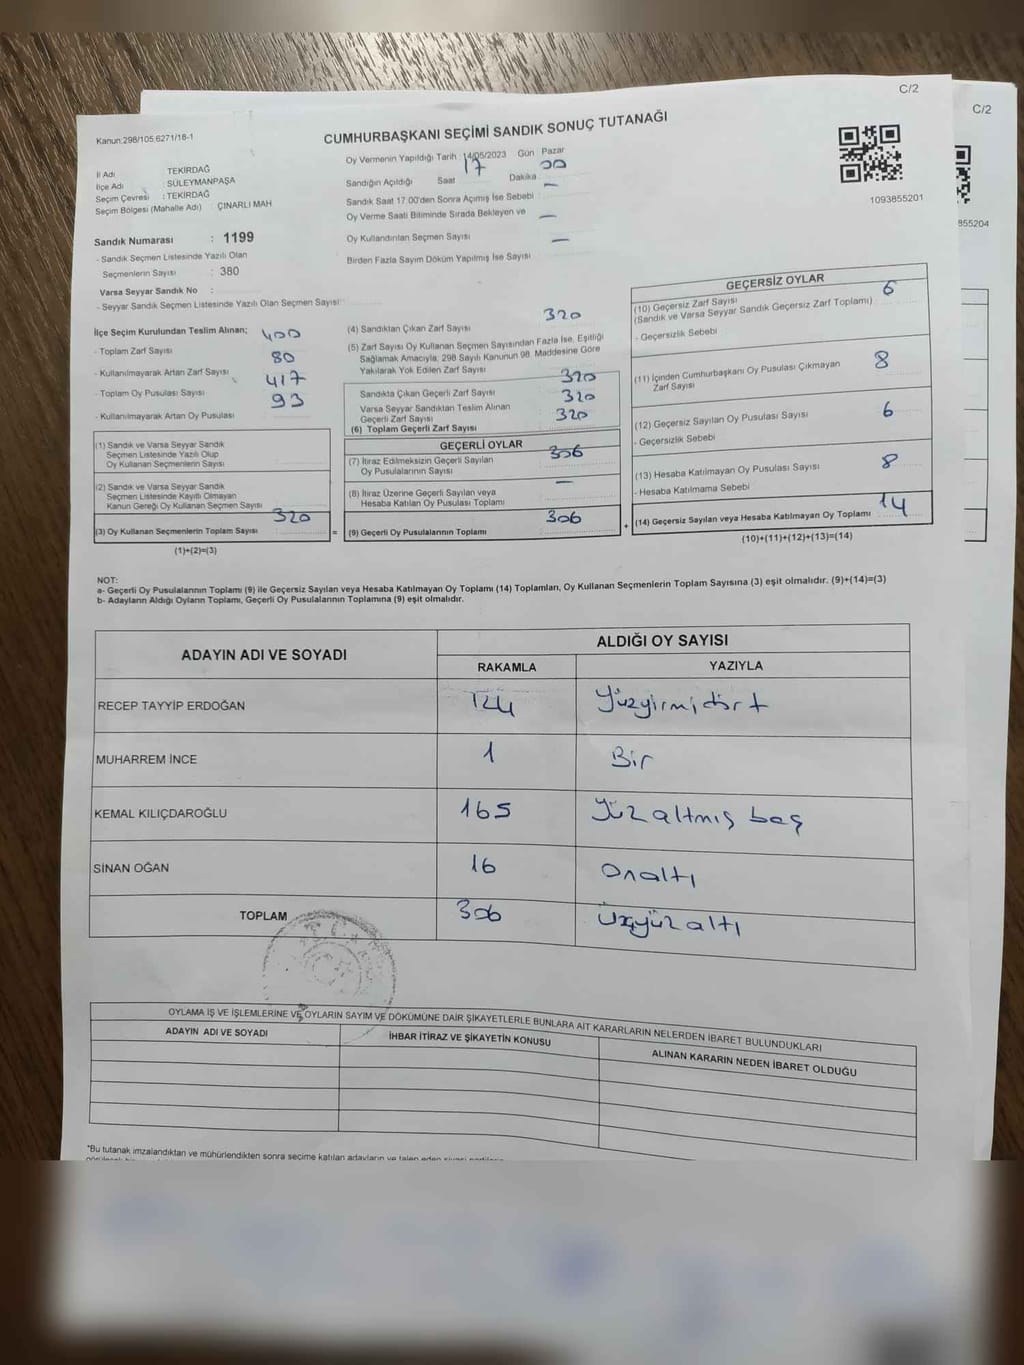 C/2
C/2
Kanun:298/105,6271/18-1
CUMHURBAŞKANI SEÇİMİ SANDIK SONUÇ TUTANAĞI
İl Adı TEKİRDAĞ
İlçe Adı : SÜLEYMANPAŞA
Seçim Çevresi : TEKİRDAĞ
Seçim Bölgesi (Mahalle Adı) ÇINARLI MAH
Sandık Numarası : 1199
- Sandık Seçmen Listesinde Yazılı Olan
Seçmenlerin Sayısı : 380
Varsa Seyyar Sandık No :
- Seyyar Sandık Seçmen Listesinde Yazılı Olan Seçmen Sayısı
Oy Vermenin Yapıldığı Tarih : 14/05/2023 Gün Pazar
Sandığın Açıldığı Saat 17 Dakika 00
Sandık Saat 17.00'den Sonra Açımış İse Sebebi : —
Oy Verme Saati Bitiminde Sırada Bekleyen ve
Oy Kullandırılan Seçmen Sayısı —
Birden Fazla Sayım Döküm Yapılmış İse Sayısı —
1093855201
855204
İlçe Seçim Kurulundan Teslim Alınan;
- Toplam Zarf Sayısı 400
- Kullanılmayarak Artan Zarf Sayısı 80
- Toplam Oy Pusulası Sayısı 417
- Kullanılmayarak Artan Oy Pusulası 93
(1) Sandık ve Varsa Seyyar Sandık
Seçmen Listesinde Yazılı Olup
Oy Kullanan Seçmenlerin Sayısı
(2) Sandık ve Varsa Seyyar Sandık
Seçmen Listesinde Kayıtlı Olmayan
Kanun Gereği Oy Kullanan Seçmen Sayısı
(3) Oy Kullanan Seçmenlerin Toplam Sayısı 320
(1)+(2)=(3)
(4) Sandıktan Çıkan Zarf Sayısı 320
(5) Zarf Sayısı Oy Kullanan Seçmen Sayısından Fazla İse, Eşitliği
Sağlamak Amacıyla, 298 Sayılı Kanunun 98. Maddesine Göre
Yakılarak Yok Edilen Zarf Sayısı
Sandıkta Çıkan Geçerli Zarf Sayısı 320
Varsa Seyyar Sandıktan Teslim Alınan
Geçerli Zarf Sayısı 320
(6) Toplam Geçerli Zarf Sayısı 320
GEÇERLİ OYLAR
(7) İtiraz Edilmeksizin Geçerli Sayılan
Oy Pusulalarının Sayısı 306
(8) İtiraz Üzerine Geçerli Sayılan veya
Hesaba Katılan Oy Pusulası Toplamı —
= (9) Geçerli Oy Pusulalarının Toplamı 306
GEÇERSİZ OYLAR
(10) Geçersiz Zarf Sayısı
(Sandık ve Varsa Seyyar Sandık Geçersiz Zarf Toplamı) 6
- Geçersizlik Sebebi
(11) İçinden Cumhurbaşkanı Oy Pusulası Çıkmayan
Zarf Sayısı 8
(12) Geçersiz Sayılan Oy Pusulası Sayısı 6
- Geçersizlik Sebebi
(13) Hesaba Katılmayan Oy Pusulası Sayısı 8
- Hesaba Katılmama Sebebi
+ (14) Geçersiz Sayılan veya Hesaba Katılmayan Oy Toplamı 14
(10)+(11)+(12)+(13)=(14)
NOT:
a- Geçerli Oy Pusulalarının Toplamı (9) ile Geçersiz Sayılan veya Hesaba Katılmayan Oy Toplamı (14) Toplamları, Oy Kullanan Seçmenlerin Toplam Sayısına (3) eşit olmalıdır. (9)+(14)=(3)
b- Adayların Aldığı Oyların Toplamı, Geçerli Oy Pusulalarının Toplamına (9) eşit olmalıdır.
ADAYIN ADI VE SOYADI ALDIĞI OY SAYISI
RAKAMLA YAZIYLA
RECEP TAYYİP ERDOĞAN 124 Yüzyirmidört
MUHARREM İNCE 1 Bir
KEMAL KILIÇDAROĞLU 165 Yüzaltmış beş
SİNAN OĞAN 16 Onaltı
TOPLAM 306 Üçyüzaltı
T.C.
OYLAMA İŞ VE İŞLEMLERİNE VE OYLARIN SAYIM VE DÖKÜMÜNE DAİR ŞİKAYETLERLE BUNLARA AİT KARARLARIN NELERDEN İBARET BULUNDUKLARI
ADAYIN ADI VE SOYADI İHBAR İTİRAZ VE ŞİKAYETİN KONUSU ALINAN KARARIN NEDEN İBARET OLDUĞU
*Bu tutanak imzalandıktan ve mühürlendikten sonra seçime katılan adayların ve talep eden siyasi